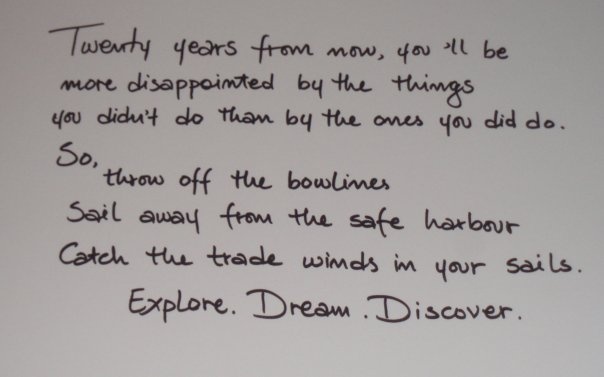 Twenty years from now, you'll be
more disappointed by the things
you didn't do than by the ones you did do.
So,
throw off the bowlines
Sail away from the safe harbour
Catch the trade winds in your sails.
Explore. Dream. Discover.